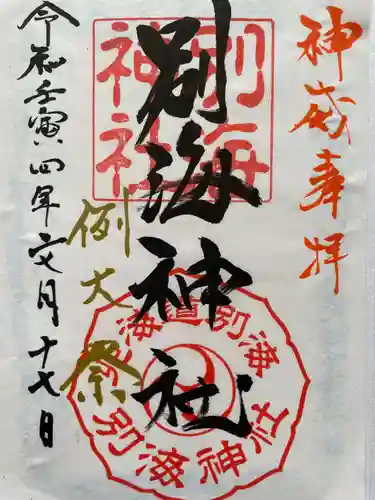 神威奉拝
別海神社
別海神社
例大祭
北海道別海
別海神社
令和壬寅四年文月十七日